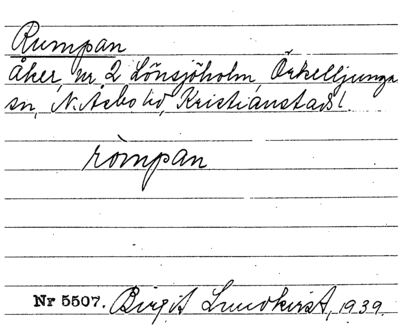 Rumpan
Åker, nr 2 Lönsjöholm, Örkelljunga
sn, N. Åsbo hd, Kristianstads l.
ròmpan
Nr 5507. Birgit Lundkvist, 1939.